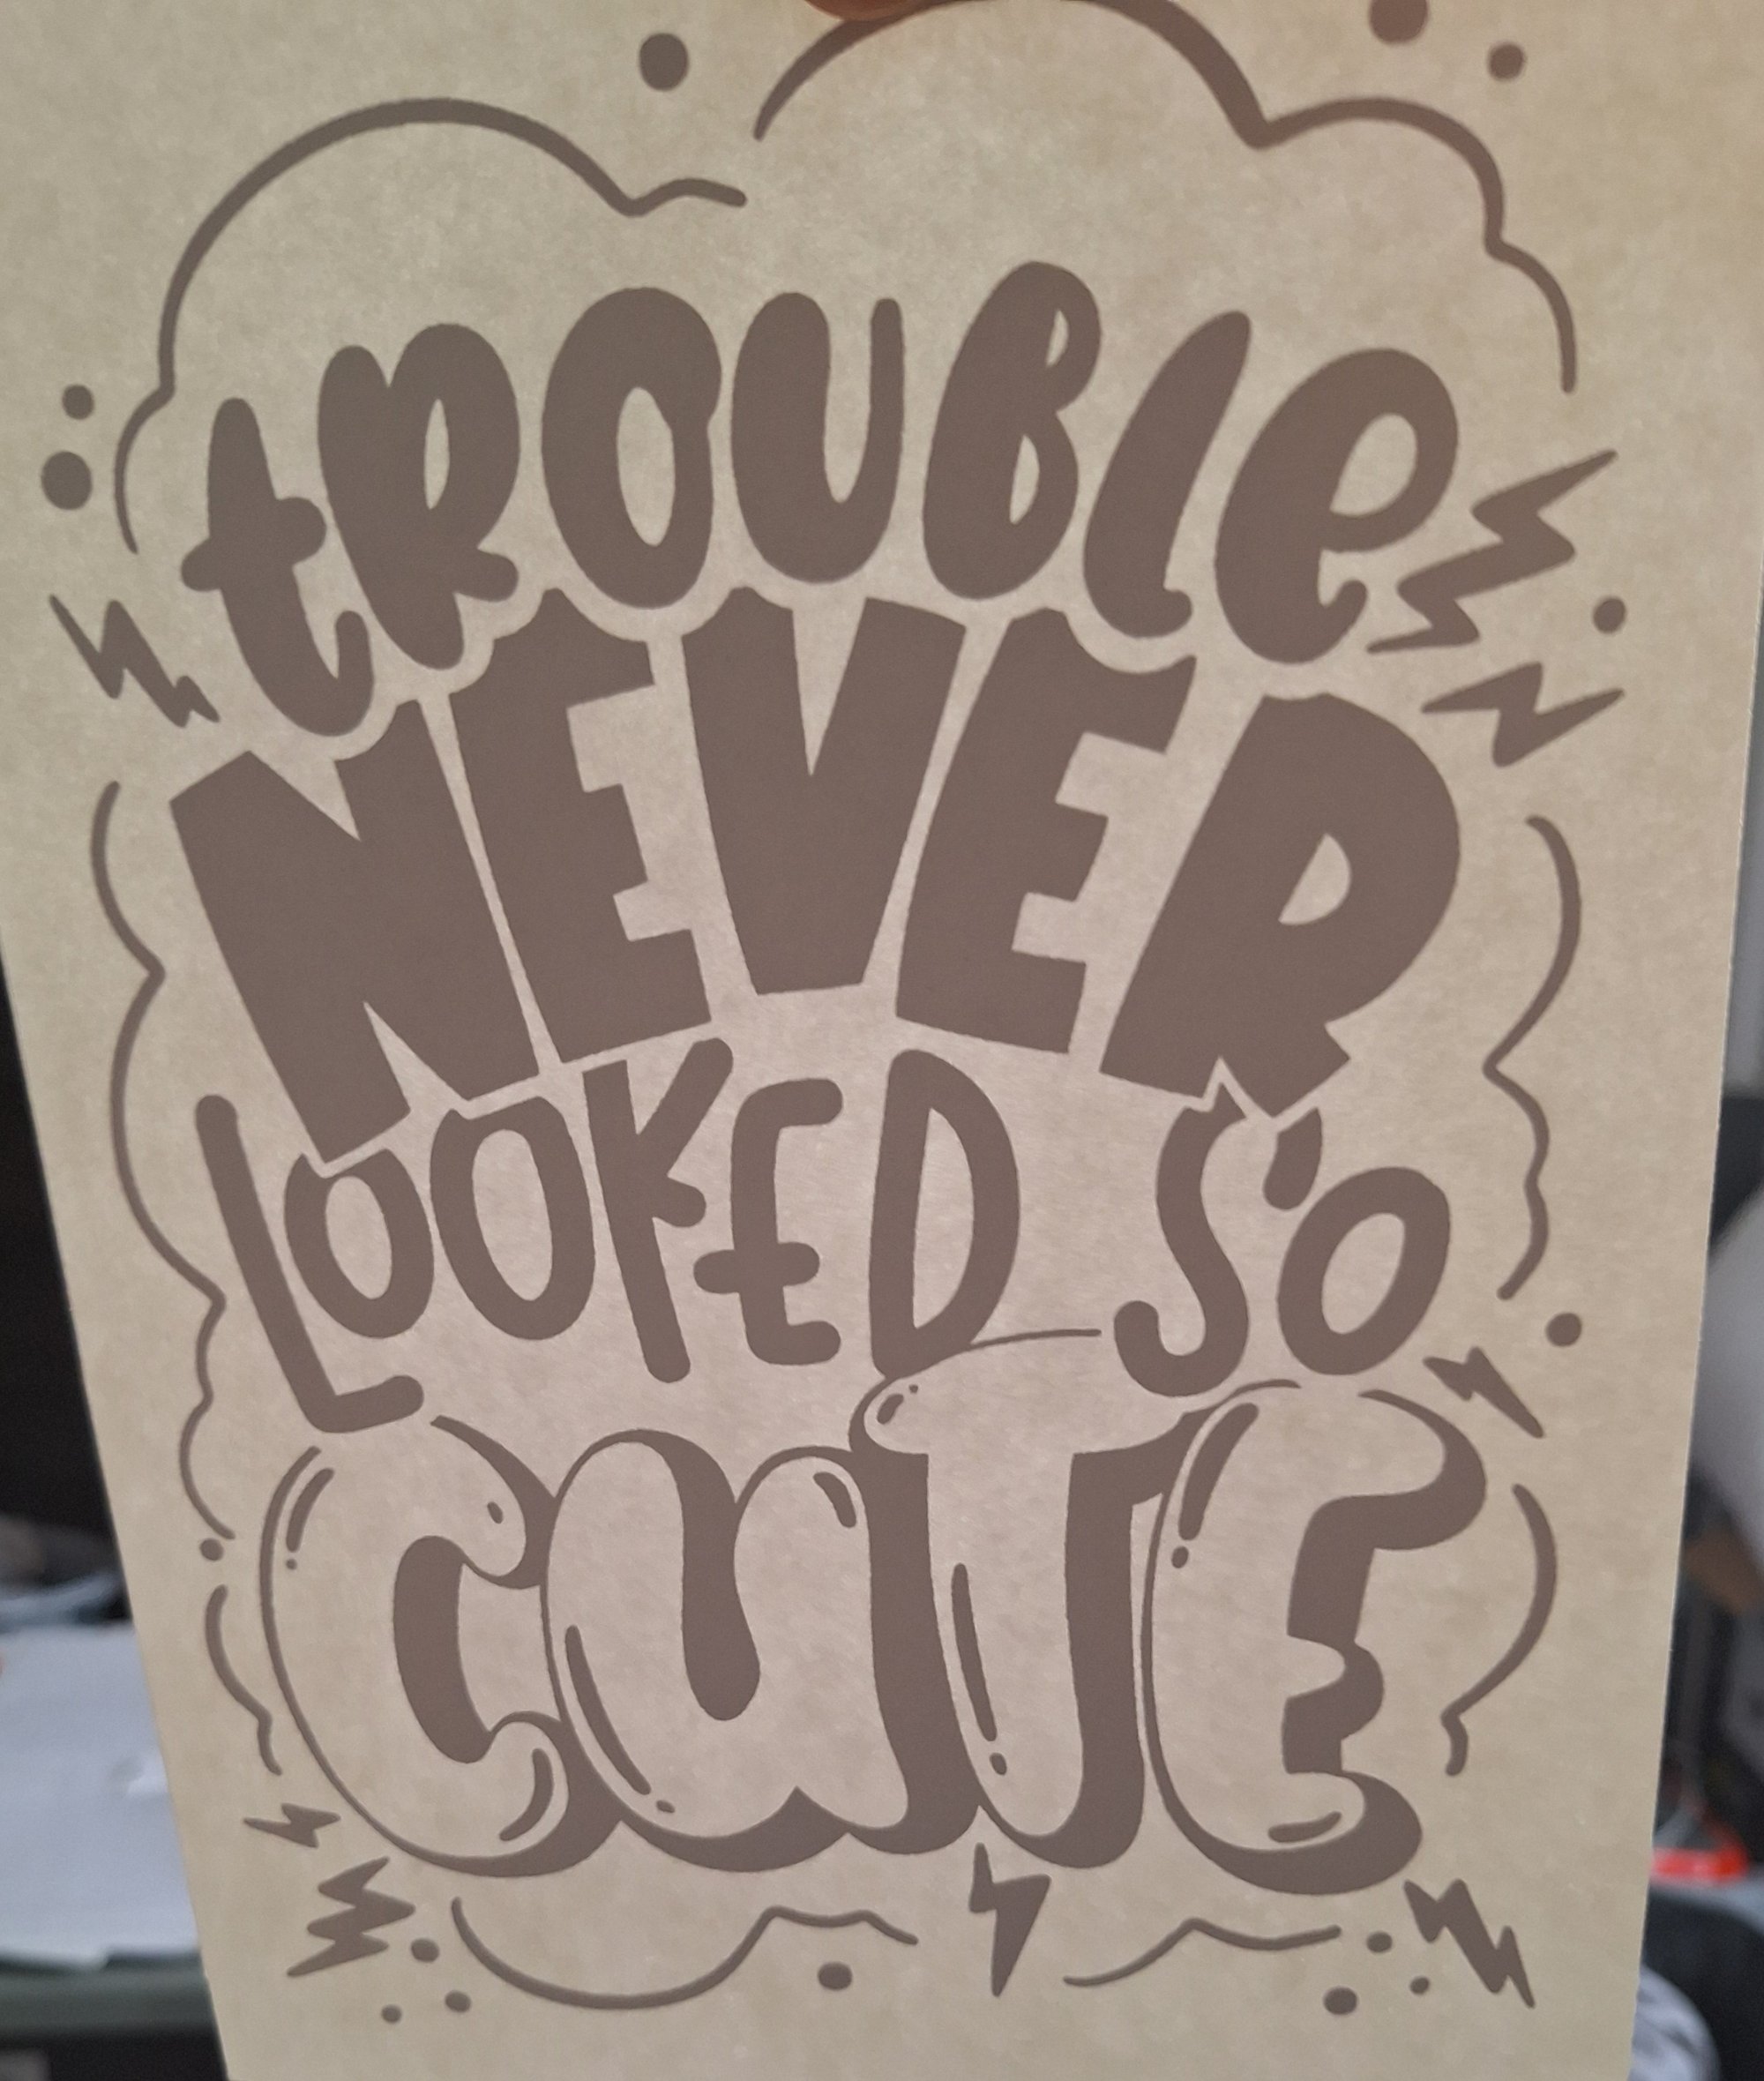 tROUBle
NEVER
LOOKED SO
CUTE